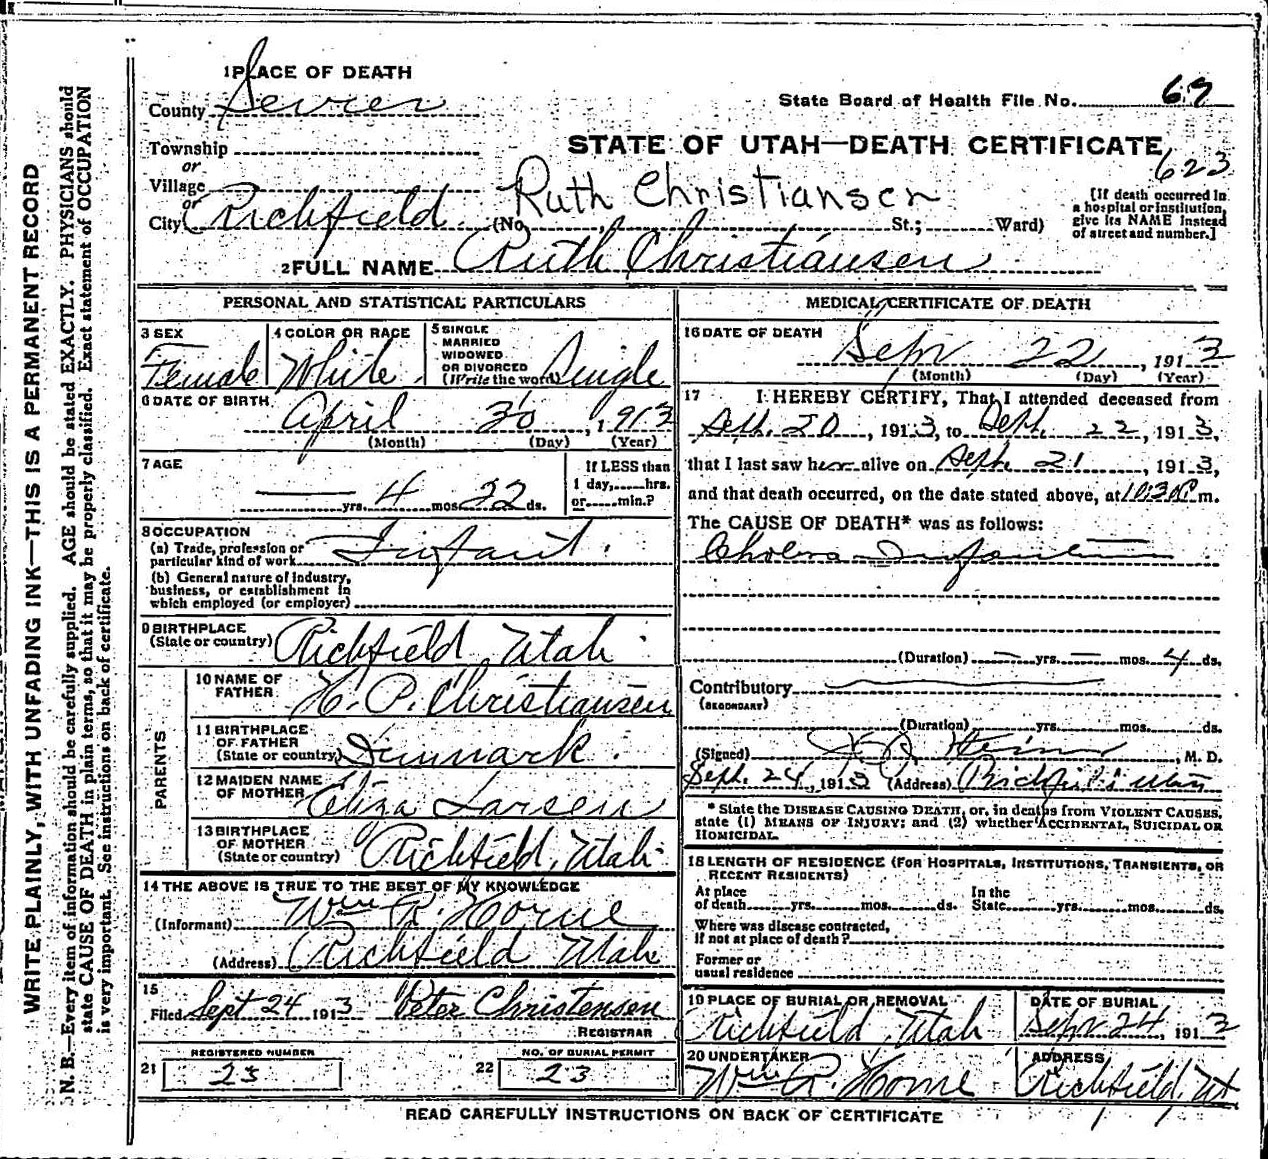 1 PLACE OF DEATH
County Sevier
State Board of Health File No. 69
Township
STATE OF UTAH—DEATH CERTIFICATE
623
or
Village
or
City Richfield (No. St.; Ward)
Ruth Christiansen
[If death occurred in
a hospital or institution,
give its NAME instead
of street and number.]
2 FULL NAME Ruth Christiansen
PERSONAL AND STATISTICAL PARTICULARS
3 SEX
Female
4 COLOR OR RACE
White
5 SINGLE
MARRIED
WIDOWED
OR DIVORCED
(Write the word) Single
6 DATE OF BIRTH
April 30, 1913
(Month) (Day) (Year)
7 AGE
— yrs. 4 mos. 22 ds.
If LESS than
1 day, hrs.
or min.?
8 OCCUPATION
(a) Trade, profession or
particular kind of work Infant.
(b) General nature of industry,
business, or establishment in
which employed (or employer)
9 BIRTHPLACE
(State or country) Richfield Utah
PARENTS
10 NAME OF
FATHER H. P. Christiansen
11 BIRTHPLACE
OF FATHER
(State or country) Denmark.
12 MAIDEN NAME
OF MOTHER Eliza Larsen
13 BIRTHPLACE
OF MOTHER
(State or country) Richfield, Utah.
14 THE ABOVE IS TRUE TO THE BEST OF MY KNOWLEDGE
(Informant) Wm R. Horne
(Address) Richfield Utah
15
Filed Sept 24 1913 Peter Christensen
REGISTRAR
REGISTERED NUMBER
21 23
NO. OF BURIAL PERMIT
22 23
MEDICAL CERTIFICATE OF DEATH
16 DATE OF DEATH
Sept 22, 1913
(Month) (Day) (Year)
17 I HEREBY CERTIFY, That I attended deceased from
Sept. 20, 1913, to Sept. 22, 1913,
that I last saw her alive on Sept. 21, 1913,
and that death occurred, on the date stated above, at m.
The CAUSE OF DEATH* was as follows:
Cholera Infantum
(Duration) — yrs. — mos. 4 ds.
Contributory
(SECONDARY)
(Duration) yrs. mos. ds.
(Signed) , M. D.
Sept. 24, 1913 (Address) Richfield Utah
* State the DISEASE CAUSING DEATH, or, in deaths from VIOLENT CAUSES,
state (1) MEANS OF INJURY; and (2) whether ACCIDENTAL, SUICIDAL OR
HOMICIDAL.
18 LENGTH OF RESIDENCE (FOR HOSPITALS, INSTITUTIONS, TRANSIENTS, OR
RECENT RESIDENTS)
At place
of death yrs. mos. ds.
In the
State yrs. mos. ds.
Where was disease contracted,
if not at place of death?
Former or
usual residence
19 PLACE OF BURIAL OR REMOVAL
Richfield Utah
DATE OF BURIAL
Sept 24, 1913
20 UNDERTAKER
Wm R. Horne
ADDRESS
Richfield, Ut
READ CAREFULLY INSTRUCTIONS ON BACK OF CERTIFICATE
WRITE PLAINLY, WITH UNFADING INK—THIS IS A PERMANENT RECORD
N. B.—Every item of information should be carefully supplied. AGE should be stated EXACTLY. PHYSICIANS should
state CAUSE OF DEATH in plain terms, so that it may be properly classified. Exact statement of OCCUPATION
is very important. See instructions on back of certificate.